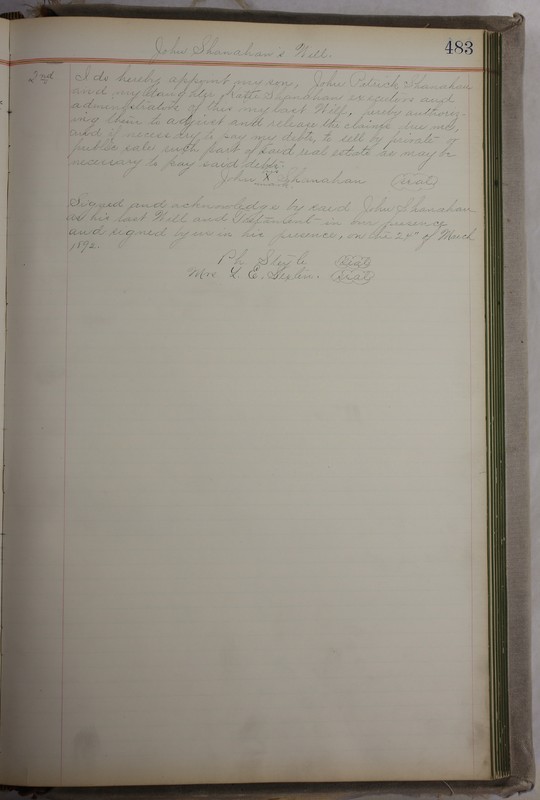 483
John Shanahan's Will.
2nd I do hereby appoint my son, John Patrick Shanahan
and my daughter, Shanahan executors and
administrators of this my last Will, hereby authoriz-
ing them to adjust and release the claims due me,
and if necessary to pay my debts, to sell by private or
public sale such part of said real estate as may be
necessary to pay said debts.
John X Shanahan (Seal)
mark
Signed and acknowledge by said John Shanahan
as his last Will and Testament in our presence
and signed by us in his presence, on the 24th of March
1892.
(Seal)
Mrs L. E. (Seal)